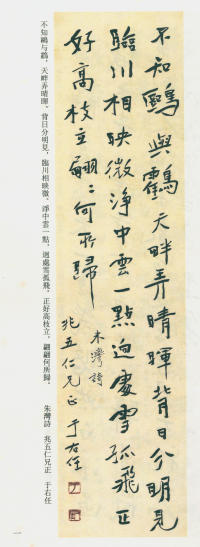 不知鷗與鶴天畔弄晴暉背日分明見
臨川相映微淨中雲一點迥處雪孤飛正
好高枝立翩〻何所歸
朱灣詩
兆五仁兄正 于右任
不知鷗与鶴，天畔弄晴暉，背日分明見，臨川相映微，淨中雲一點，迥處雪孤飛，正好高枝立，翩翩何所歸． 朱灣詩 兆五仁兄正 于右任
一